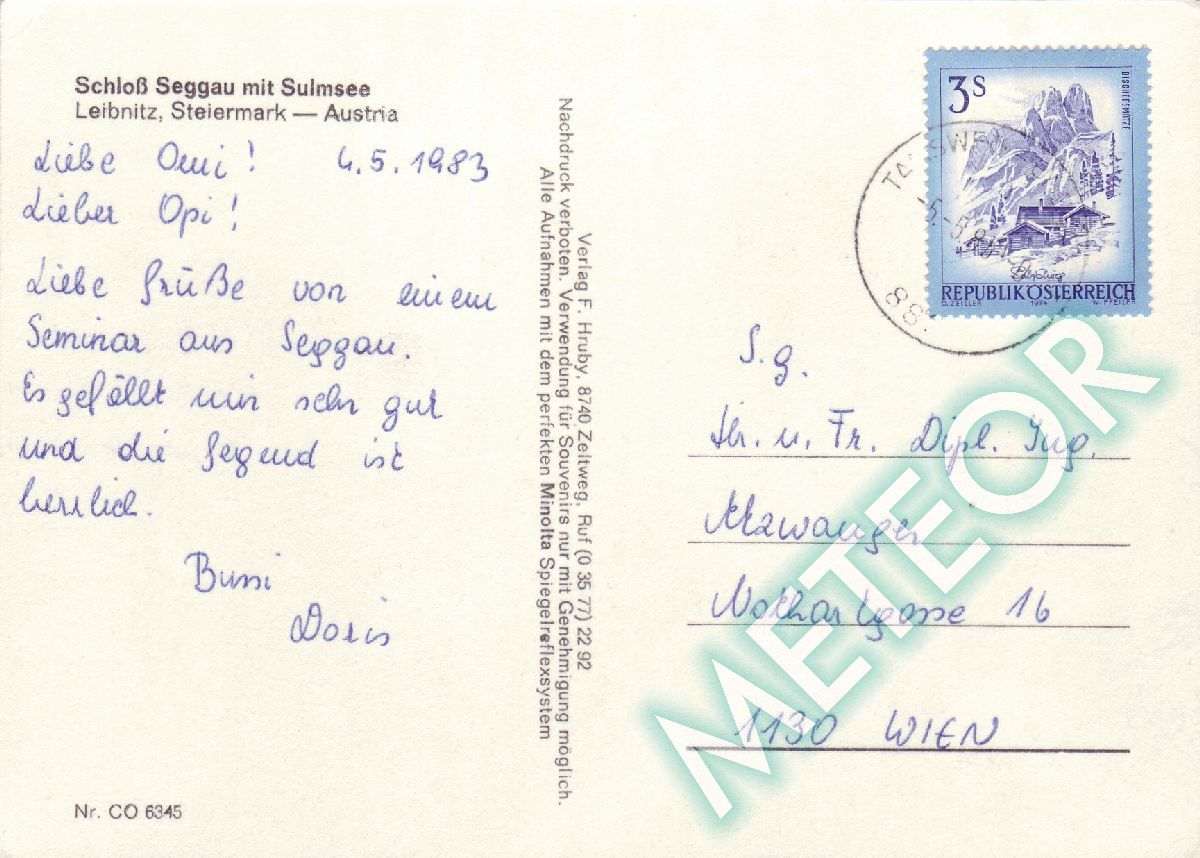 Schloß Seggau mit Sulmsee
Leibnitz, Steiermark — Austria
Liebe Omi! 4.5.1983
Lieber Opi!
Liebe Grüße von einem
Seminar aus Seggau.
Es gefällt mir sehr gut
und die Gegend ist
herrlich.
Bussi
Doris
Nr. CO 6345
Verlag F. Hruby, 8740 Zeltweg, Ruf (0 35 77) 22 92
Nachdruck verboten. Verwendung für Souvenirs nur mit Genehmigung möglich.
Alle Aufnahmen mit dem perfekten Minolta Spiegelreflexsystem
3S
BISCHOFSMÜTZE
Salzburg
REPUBLIK ÖSTERREICH
O. ZEILLER 1974 W. PFEILER
S.g.
Hr. u. Fr. Dipl. Ing.
Atzwanger
Nothartgasse 16
1130 WIEN
METEOR